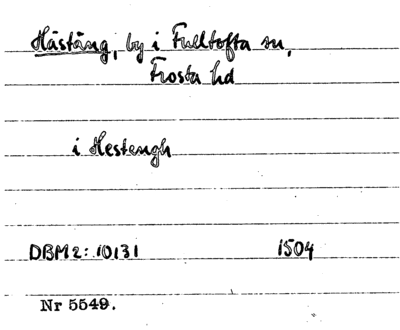 Hästäng, by i Fulltofta sn,
Frosta hd
i Hestengh
DBM 2: 10131 1504
Nr 5549.